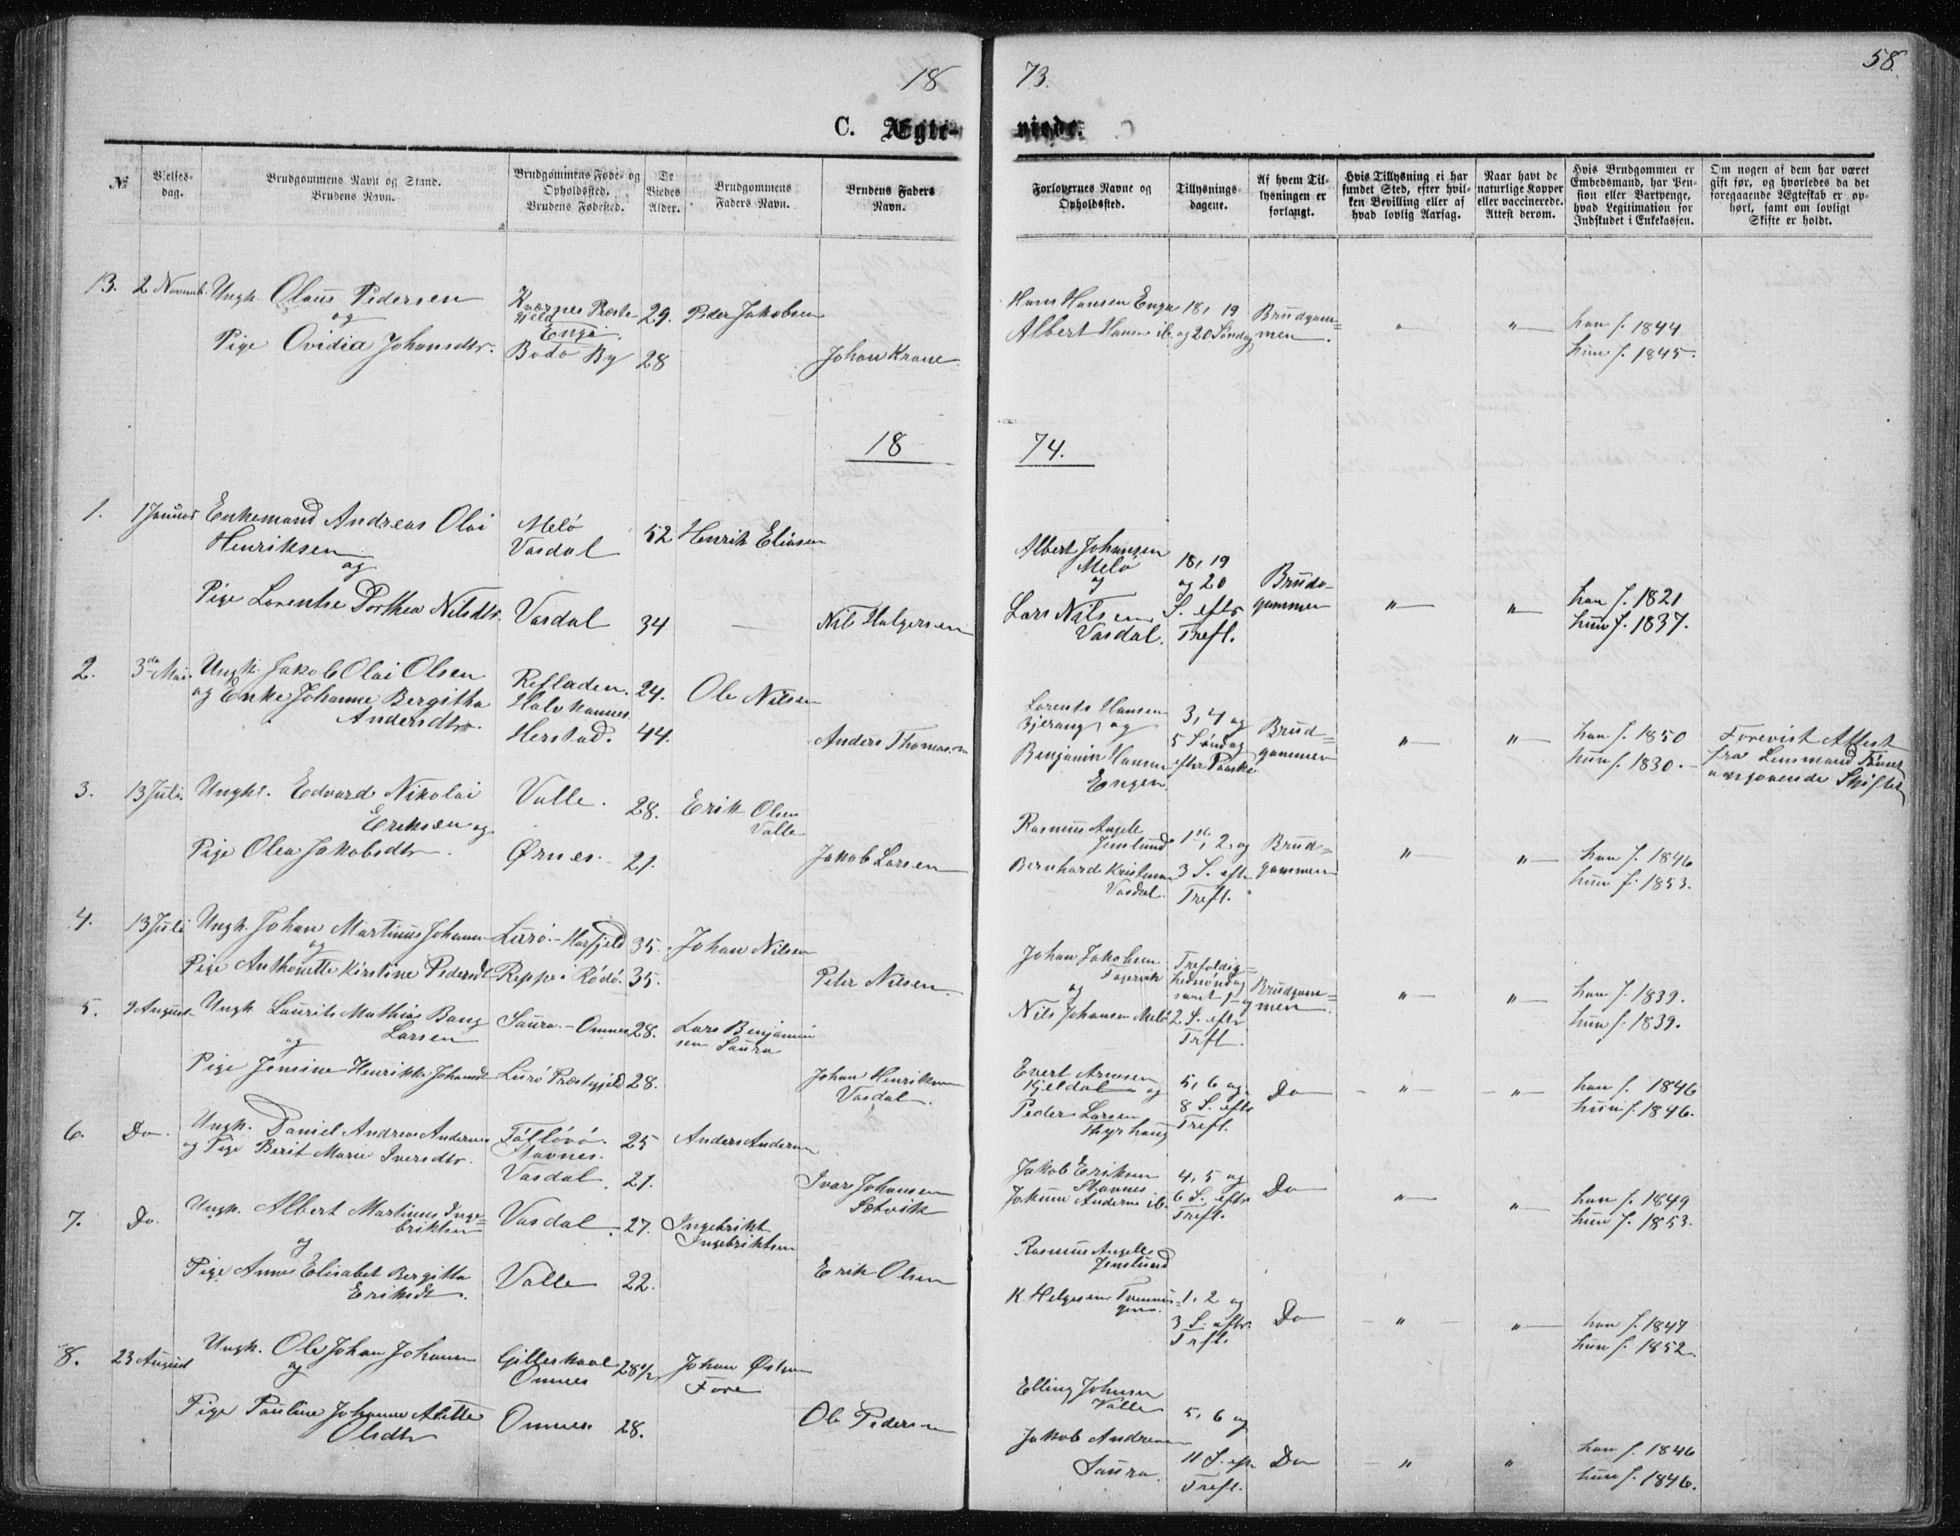 18 73. 58.
C. Ægte- viede.
№
Vielses-
dag.
Brudgommens Navn og Stand.
Brudens Navn.
Brudgommens Føde- og
Opholdssted.
Brudens Fødested.
De
Viedes
Alder.
Brudgommens
Faders Navn.
Brudens Faders
Navn.
Forlovernes Navne og
Opholdssted.
Tillysnings-
dagene.
Af hvem Til-
lysningen er
forlangt.
Hvis Tillysning ei har
fundet Sted, efter hvil-
ken Bevilling eller af
hvad lovlig Aarsag.
Naar havt de
naturlige Kopper
eller vaccinerede.
Attest derom.
Hvis Brudgommen er
Embedsmand, har Pen-
sion eller Vartpenge,
hvad Legitimation for
Indskudet i Enkekassen.
Om nogen af dem har været
gift før, og hvorledes da det
foregaaende Ægteskab er op-
hørt, samt om lovligt
Skifte er holdt.
13. 2 Novemb. Ungk. Olaus Pedersen
og
Pige Ovidia Johansdtr.
Præste
gjeld
Enga.
Bodø By
29.
28
Peder Jakobsen
Johan Krane
Hans Hansen Enga
Albert Hansen ib.
18, 19
og 20 Søndag
Brudgom=
men.
" "
han f. 1844
hun f. 1845.
18 74.
1. 1 Januar Enkemand Andreas Olai
Henriksen
og
Pige Lorentse Dorthea Nilsdtr.
Melø
Vasdal
Vasdal
52
34
Henrik Eliasen
Nils Halgersen
Albert Johansen
Melø
og
Lars Nilsen
Vasdal.
18, 19
og 20
S. eftr
Trefl.
Brudg-
gommen
" "
han f. 1821
hun f. 1837.
2. 3die Mai. Ungk. Jakob Olai Olsen
og Enke Johanne Bergitha
Andersdtr.
Herstad.
24.
44.
Ole Nilsen
Anders Thomasen
Lorents Hansen
Bjerang og
Benjamin Hansen
Engen
3, 4 og
5 Søndag
efter Paaske
Brud=
gommen
" "
han f. 1850
hun f. 1830.
Forevist Attest
fra Lensmand
angaaende Skiftet
3. 13 Juli Ungk. Edvard Nikolai
Eriksen og
Pige Olea Jakobsdtr.
Valle.
Ørnes.
28.
21.
Erik Olsen
Valle
Jakob Larsen
Rasmus Angell
Jenslund
Bernhard Kristensen
Vasdal.
1st, 2. og
3 S. eftr
Trefl.
Brud=
gommen
" "
han f. 1846
hun f. 1853.
4. 13 Juli Ungk. Johan Martinus Johansen
og
Pige Anthonette Kirstine Pedersdt
Lurø - Harfjeld
Reppe i Rødø.
35.
35.
Johan Nilsen
Peter Nilsen
Johan Jakobsen
Fagervik
og
Nils Johansen Melø
Trefoldig-
hedssøndag
samt 1 og
2 S. eftr
Trfl.
Brudgom=
men
" "
han f. 1839.
hun f. 1839.
5. 9 August Ungk. Laurits Mathias Bang
Larsen
og
Pige Jensine Henrikke Johansdt
Saura. - Onnes
Lurø Præstegjeld
28.
28.
Lars Benjamin
sen Saura
Johan Henriksen
Vasdal.
Evert Arnesen
Kjeldal og
Peder Larsen
Thyrhaug
5, 6 og
8 S. eftr
Trefl.
Do
" "
han f. 1846
hun f. 1846.
6. Do. Ungk. Daniel Andreas Andersen
og Pige Berit Marie Iversdtr.
Stavnes.
Vasdal.
25
21.
Anders Andersen
Ivar Johansen
Sætvik
Jakob Eriksen
Stavnes
Andersen ib.
4, 5 og
6 S. eftr
Trefl.
Do
" "
han f. 1849
hun f. 1853.
7. Do. Ungk. Albert Martinus Inge=
brittsen
og
Pige Anne Elisabet Bergitta
Eriksdt.
Vasdal.
Valle
27.
22.
Ingebrikt
Ingebriktsen
Erik Olsen
Rasmus Angell
Jenslund
K. Helgesen
1, 2 og
3 S. eftr.
Trfl.
Do
" "
han f. 1847
hun f. 1852.
8. 23 August Ungk. Ole Johan Johansen
og
Pige Pauline Johanne Alette
Olsdtr
Gilleskaal
Onnes
Onnes.
28 1/2
28.
Johan Olsen
Fore
Ole Pedersen
Elling Johnsen
Valle
Jakob Andreasen
Saura.
5, 6 og
11 S. eftr
Trefl.
Do
" "
han f. 1846
hun f. 1846.